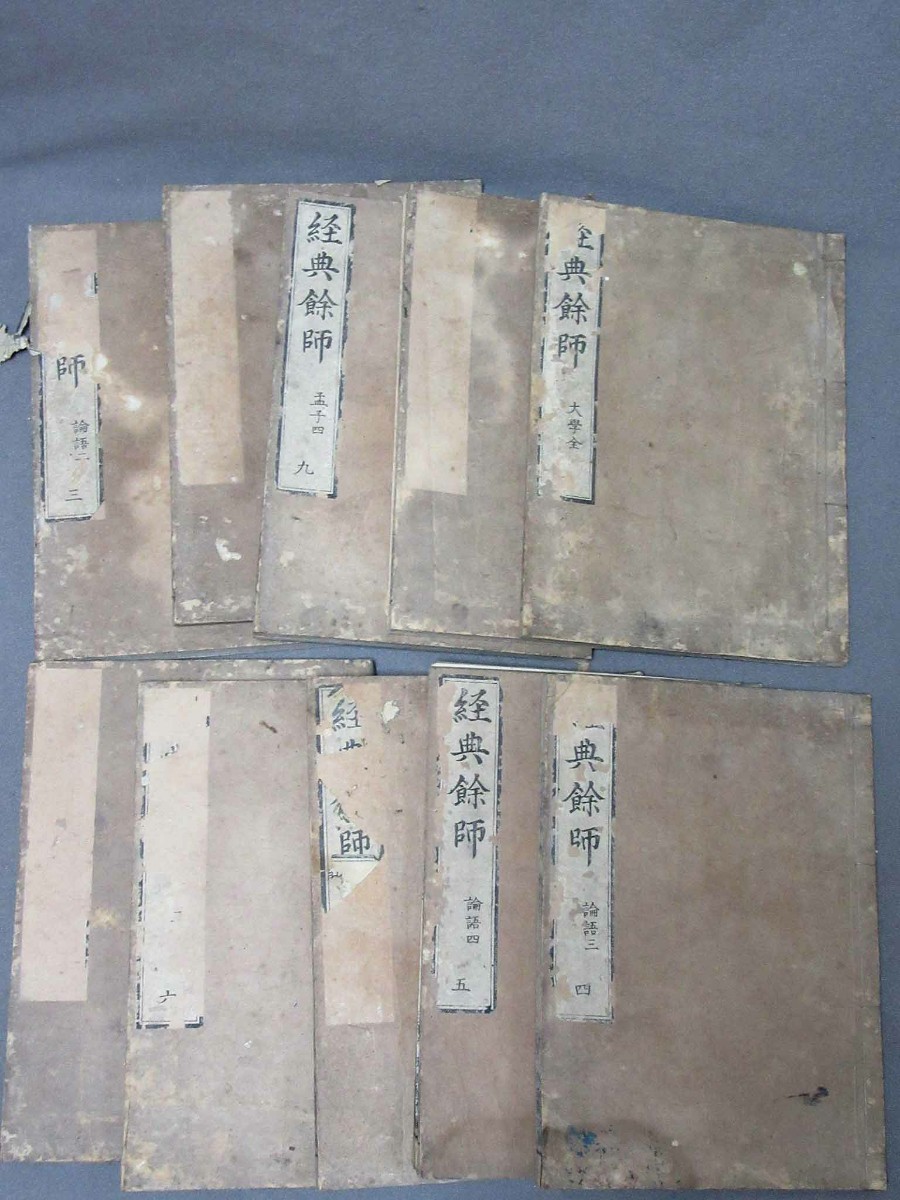 経典餘師
大學全
経典餘師
孟子四
九
師
論語二
三
典餘師
論語三
四
経典餘師
論語四
五
経
師
六